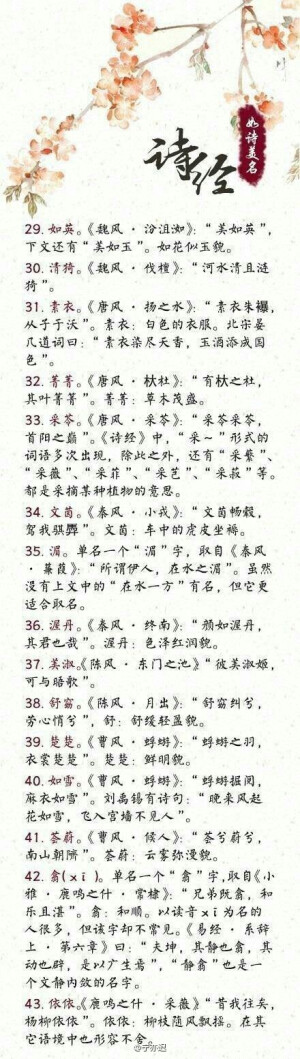 如诗美名
诗经
29. 如英。《魏风·汾沮洳》：“美如英”，
下文还有“美如玉”。如花似玉貌。
30. 清猗。《魏风·伐檀》：“河水清且涟
猗”。
31. 素衣。《唐风·扬之水》：“素衣朱襮，
从子于沃”。素衣：白色的衣服。北宋晏
几道词曰：“素衣染尽天香，玉酒添成国
色”。
32. 菁菁。《唐风·杕杜》：“有杕之杜，
其叶菁菁”。菁菁：草木茂盛。
33. 采苓。《唐风·采苓》：“采苓采苓，
首阳之巅”。《诗经》中，“采～”形式的
词语多次出现，除此之外，还有“采蘩”、
“采薇”、“采菲”、“采芑”、“采菽”等。
都是采摘某种植物的意思。
34. 文茵。《秦风·小戎》：“文茵畅毂，
驾我骐馵”。文茵：车中的虎皮坐褥。
35. 湄。单名一个“湄”字，取自《秦风
·蒹葭》：“所谓伊人，在水之湄”。虽然
没有上文中的“在水一方”有名，但它更
适合取名。
36. 渥丹。《秦风·终南》：“颜如渥丹，
其君也哉”。渥丹：色泽红润貌。
37. 美淑。《陈风·东门之池》“彼美淑姬，
可与晤歌”。
38. 舒窈。《陈风·月出》：“舒窈纠兮，
劳心悄兮”，舒：舒缓轻盈貌。
39. 楚楚。《曹风·蜉蝣》：“蜉蝣之羽，
衣裳楚楚”。楚楚：鲜明貌。
40. 如雪。《曹风·蜉蝣》：“蜉蝣掘阅，
麻衣如雪”。刘禹锡有诗句：“晚来风起
花如雪，飞入宫墙不见人”。
41. 荟蔚。《曹风·候人》：“荟兮蔚兮，
南山朝隮”。荟蔚：云雾弥漫貌。
42. 翕(xī)。单名一个“翕”字，取自《小
雅·鹿鸣之什·常棣》：“兄弟既翕，和
乐且湛”。翕：和顺。以读音xī为名的
人很多，但该字却不常见。《易经·系辞
上·第六章》曰：“夫坤，其静也翕，其
动也辟，是以广生焉”，“静翕”也是一
个文静内敛的名字。
43. 依依。《鹿鸣之什·采薇》“昔我往矣，
杨柳依依”。依依：柳枝随风飘摇。在其
它语境中也形容不舍。